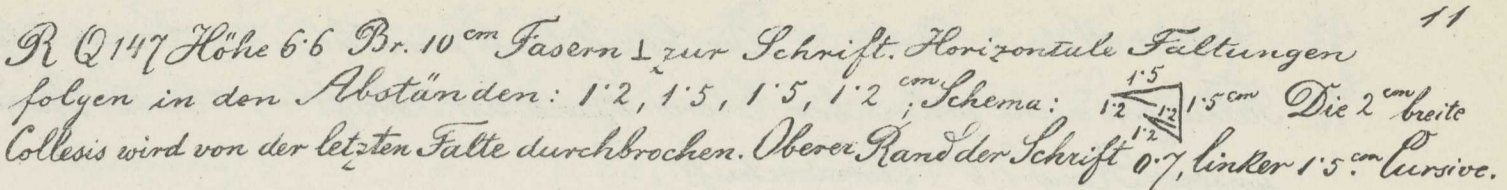 11
R Q 147 Höhe 6·6 Br. 10 cm Fasern ⊥ zur Schrift. Horizontale Faltungen
folgen in den Abständen: 1·2, 1·5, 1·5, 1·2 cm; Schema: 1·5 1·2 1·2 1·2 1·5 cm Die 2 cm breite
Collesis wird von der letzten Falte durchbrochen. Oberer Rand der Schrift 0·7, linker 1·5 cm. Cursive.